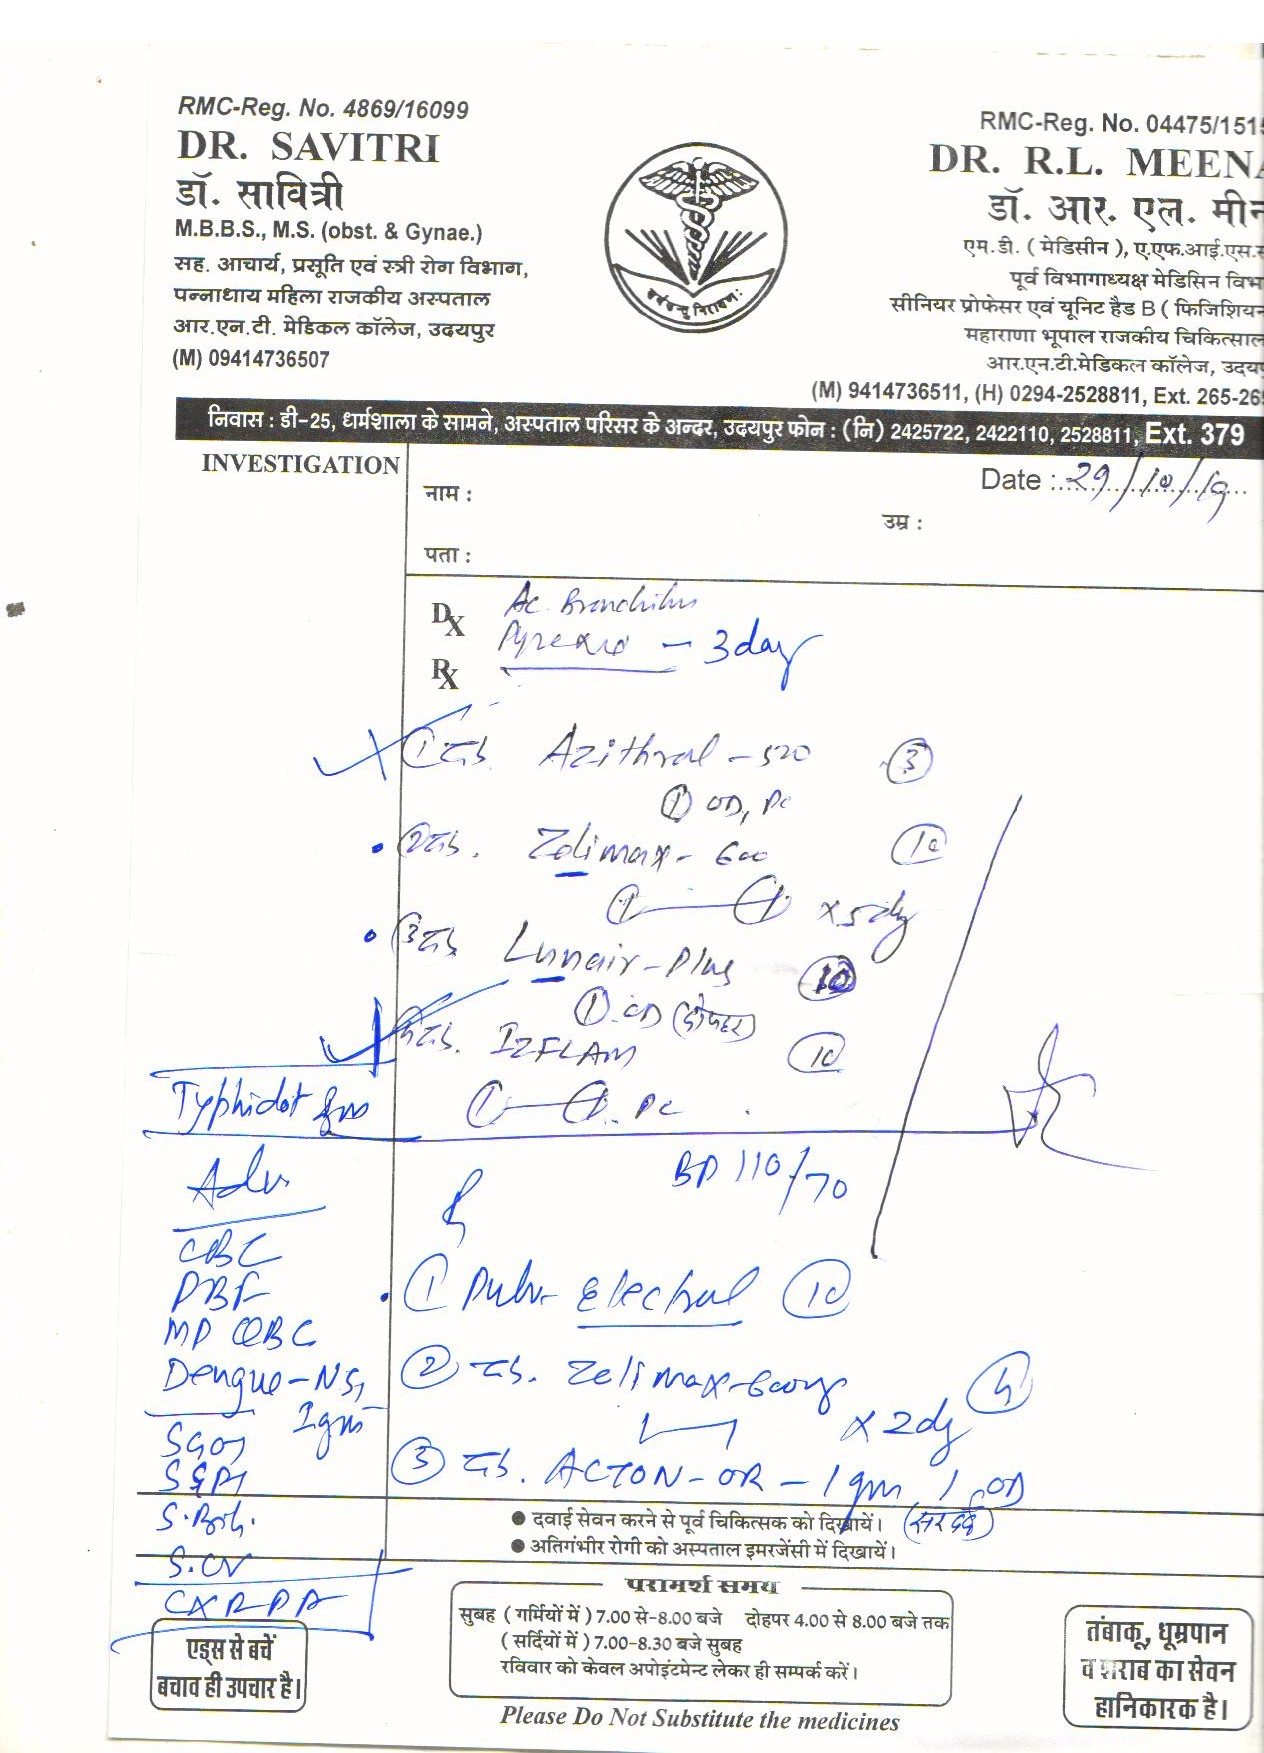 RMC-Reg. No. 4869/16099
DR. SAVITRI
डॉ. सावित्री
M.B.B.S., M.S. (obst. & Gynae.)
सह. आचार्य, प्रसूति एवं स्त्री रोग विभाग,
पन्नाधाय महिला राजकीय अस्पताल
आर.एन.टी. मेडिकल कॉलेज, उदयपुर
(M) 09414736507
RMC-Reg. No. 04475/151
DR. R.L. MEENA
डॉ. आर. एल. मीन
एम.डी. ( मेडिसीन ), ए.एफ.आई.एस.
पूर्व विभागाध्यक्ष मेडिसिन विभा
सीनियर प्रोफेसर एवं यूनिट हैड B ( फिजिशियन
महाराणा भूपाल राजकीय चिकित्साल
आर.एन.टी.मेडिकल कॉलेज, उदय
(M) 9414736511, (H) 0294-2528811, Ext. 265-26
निवास : डी-25, धर्मशाला के सामने, अस्पताल परिसर के अन्दर, उदयपुर फोन : (नि) 2425722, 2422110, 2528811, Ext. 379
INVESTIGATION
Date : 29/10/19
नाम :
उम्र :
पता :
Dx Ac Bronchitis
Pyrexia - 3 day
Rx
① टैब. Azithral - 500 ③
① OD, PC
② टैब. Zolimax - 600 ⑩
①—① x 5 dy
③ टैब. Lunair-Plus ⑩
① OD (दोपहर)
④ टैब. IZFLAM ⑩
①—① PC
Typhidot Igm
BP 110/70
Adv
CBC
PBF
MP QBC
Dengue-NS1
Igm
SGOT
SGPT
S. Bil.
S. Cr
CXR PA
① Pulv- Electral ⑩
② टैब. Zolimax-600mg ④
x 2 dy
③ टैब. ACTON-OR - 1 gm 1 OD
(सरदर्द)
● दवाई सेवन करने से पूर्व चिकित्सक को दिखायें।
● अतिगंभीर रोगी को अस्पताल इमरजेंसी में दिखायें।
परामर्श समय
सुबह ( गर्मियों में ) 7.00 से-8.00 बजे दोहपर 4.00 से 8.00 बजे तक
( सर्दियों में ) 7.00-8.30 बजे सुबह
रविवार को केवल अपोइंटमेन्ट लेकर ही सम्पर्क करें।
एड्स से बचें
बचाव ही उपचार है।
तंबाकू, धूम्रपान
व शराब का सेवन
हानिकारक है।
Please Do Not Substitute the medicines